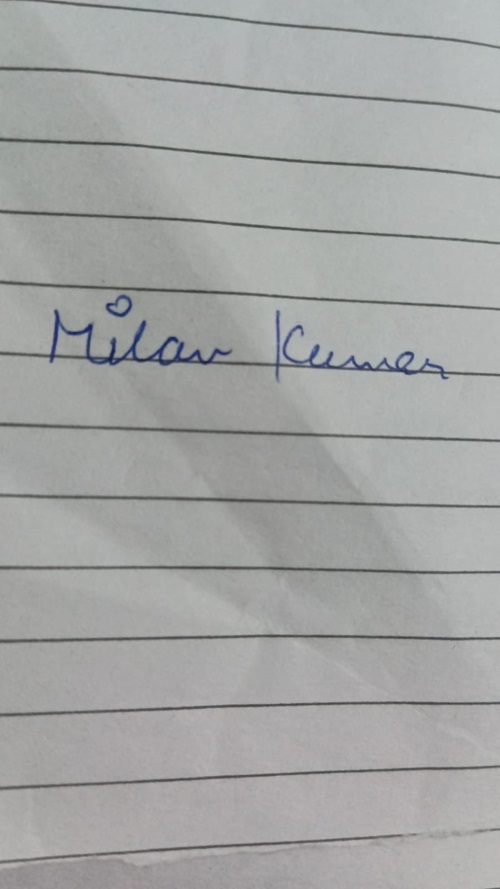 Milan Kumar